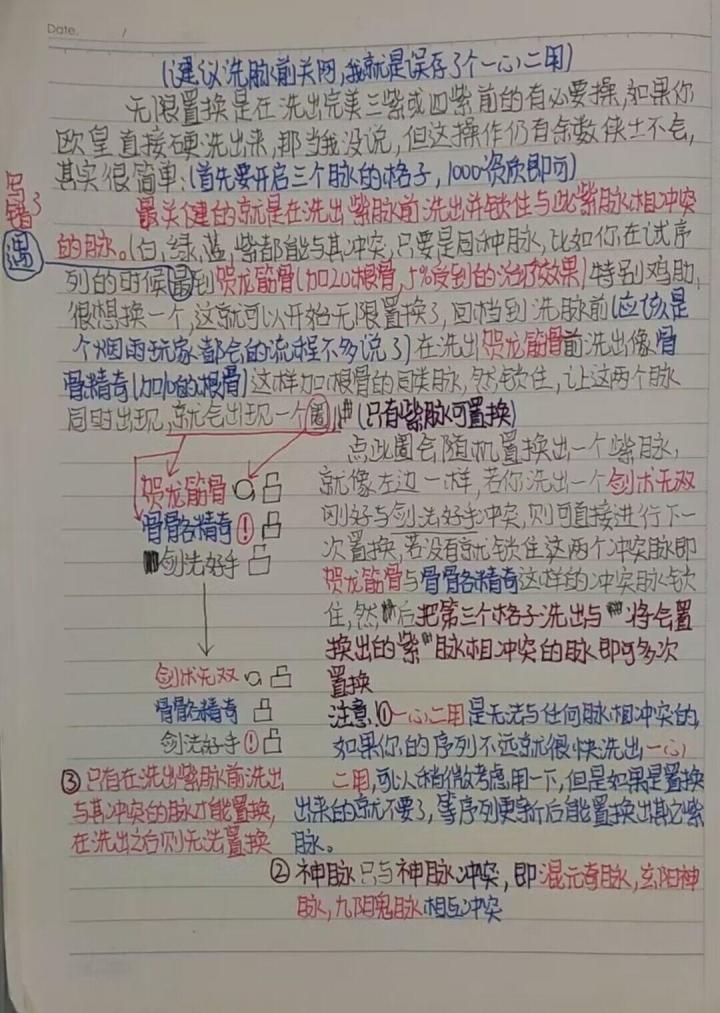 Date.      /
(建议洗脉前关网,我就是误存了个一心二用)
无限置换是在洗出完美三紫或四紫前的有必要操,如果你
欧皇直接硬洗出来,那当我没说,但这操作仍有余数侠士不会,
其实很简单:(首先要开启三个脉的格子,1000资质即可)
写错了
遇
最关健的就是在洗出紫脉前洗出并锁住与此紫脉相冲突
的脉。(白,绿,蓝,紫都能与其冲突,只要是同种脉,比如你在试序
列的时候到贺龙筋骨(加20根骨,5%受到的治疗效果)特别鸡肋,
很想换一个,这就可以开始无限置换了,回档到洗脉前(应该是
个烟雨玩家都会的流程不多说了)在洗出贺龙筋骨前洗出像骨
骨精奇(加10的根骨)这样加根骨的同类脉,然锁住,让这两个脉
同时出现,就会出现一个圈,(只有紫脉可置换)
点此圈会随机置换出一个紫脉,
就像左边一样,若你洗出一个剑术无双
刚好与剑法好手冲突,则可直接进行下一
次置换,若没有就锁住这两个冲突脉即
贺龙筋骨与骨骼精奇这样的冲突脉锁
住,然后把第三个格子洗出与将会置
换出的紫脉相冲突的脉即可多次
置换
贺龙筋骨
骨骼精奇!
剑法好手
剑术无双
骨骼精奇
剑法好手!
注意:①一心二用是无法与任何脉相冲突的,
如果你的序列不远就很快洗出一心
二用,可以稍微考虑用一下,但是如果是置换
出来的就不要了,等序列更新后能置换出其它紫
脉。
③只有在洗出紫脉前洗出
与其冲突的脉才能置换,
在洗出之后则无法置换
②神脉只与神脉冲突,即混元奇脉,玄阳神
脉,九阴鬼脉相互冲突